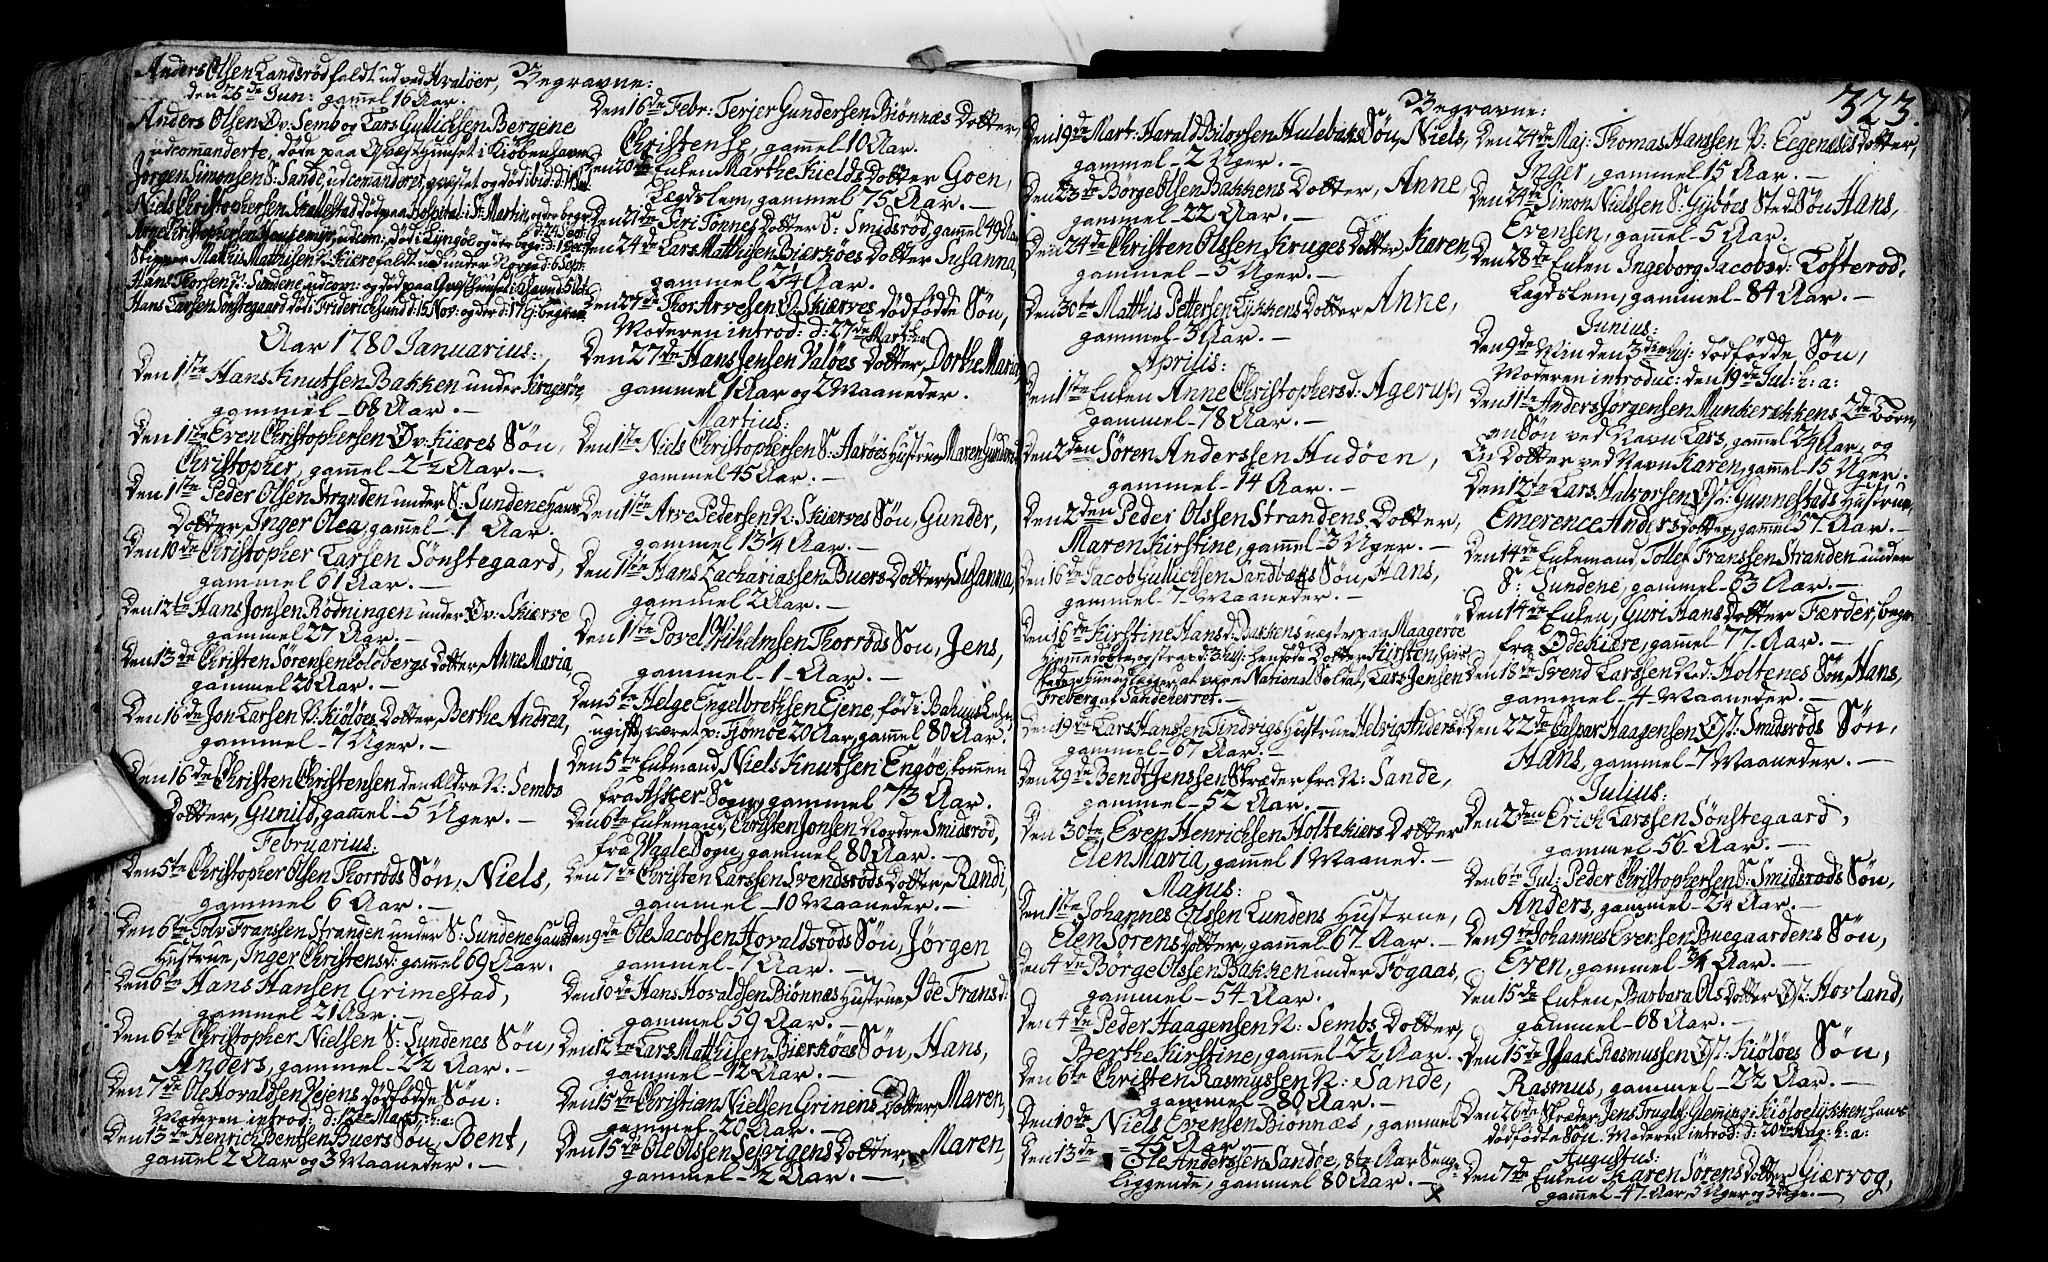 Begravne:
Anders Olsen Landsrød faldt ud ved Hvaløer,
den 25de Jun: gammel 16 Aar.
Anders Olsen Øv: Semb og Lars Gullichsen Bergene
udcomanderte, døde paa Qvæsthuuset i Kiøbenhavn
Jørgen Simonsen S: Sande, udcomanderet, qvæstet og død ibid: d:
Niels Christophersen Skallestad død paa Hospital: i St: Martin, og der begr:
d: 24 Sept:
Arne Christophersen udcom: død i Lyngøe og der begr: d: 1 Oct:
Skipper Mathis Mathisen N: Kiære faldt ud under Norge d: 6 Sept:
Hans Thorsen N: Sundene udcom: og død paa Qvæsthuuset i Khavn d: 5 Oct:
Hans Larsen Sønstegaard død i Friderichsund d: 15 Nov: og der d: 17 Ej: begrav:
Aar 1780 Januarius:
Den 1ste Hans Knutsen Bakken under Kragerøe,
gammel - 68 Aar. -
Den 1ste Even Christophersen Øv: Kiæres Søn,
Christopher, gam̄el - 2½ Aar. -
Den 1ste Peder Olsen Stranden under S: Sundene Hans
Dotter, Inger Olea, gam̄el - 7 Aar.
Den 10de Christopher Larsen Sønstegaard,
gammel 61 Aar. -
Den 12te Hans Jonsen Rødningen under Øv: Skierve
gammel 27 Aar. -
Den 13de Christen Sørensen Holdbergs Dotter, Anne Maria,
gammel 20 Aar. -
Den 16de Jon Larsen N: Kiøløes Dotter, Berthe Andrea,
gammel - 7 Uger. -
Den 16de Christen Christensen den Ældre N: Sembs
Dotter, Gunild, gam̄el - 5 Uger. -
Februarius:
Den 5te Christopher Olsen Thorrøds Søn, Niels,
gammel 6 Aar. -
Den 6te Tolv Franssen Stranden under S: Sundene Hans
Hustrue, Inger Christensd: gam̄el 69 Aar.
Den 6te Hans Hansen Grimestad,
gammel 21 Aar. -
Den 6te Christopher Nielsen S: Sundenes Søn,
Anders, gammel - 2½ Aar. -
Den 7de Ole Horaldsen Vejens dødfødde Søn:
Moderen introd: d: 12te Mart: h: a:
Den 13de Henrich Bentsen Buers Søn, Bent,
gam̄el 2 Aar og 3 Maaneder. -
Den 16de Febr: Terjer Gundersen Biønnæs Dotter,
Christense, gammel 10 Aar.
Den 20de Enken Marthe Kields Dotter Goen,
Lægdslem, gammel 75 Aar. -
Den 21de Siri Tønnes Dotter S: Smidsrød, gammel 49 Aar
Den 24de Lars Mathisen Bierkøes Dotter Susanna,
gammel 24 Aar.
Den 27de Thor Arvesen Ø: Skierves dødfødde Søn,
Moderen introd: d: 27de Mart: h: a:
Den 27de Hans Jensen Valøes Dotter, Dorthe Maria,
gammel 1 Aar og 2 Maaneder.
Martius:
Den 1ste Niels Christophersen S: Aarøes Hustrue Maren
gammel 45 Aar. -
Den 1ste Arve Pedersen N: Skierves Søn, Gunder,
gammel 13¼ Aar. -
Den 1ste Hans Zachariassen Buers Dotter, Susanna,
gammel 2 Aar. -
Den 1ste Povel Wilhelmsen Thorrøds Søn, Jens,
gammel - 1 - Aar. -
Den 5te Helge Engelbrethsen Ejene, fød i Bahuus Lehn
ugift, været p: Tjømøe 20 Aar, gam̄el 80 Aar.
Den 5te Enkemand Niels Knutsen Engøe, kommen
fra Asker Sogn, gammel 73 Aar.
Den 6te Enkemand, Christen Jonsen Nordre Smidsrød,
fra Vaale Sogn, gammel 80 Aar. -
Den 7de Christen Larssen Svendsrøds Dotter, Randi,
gammel - 10 Maaneder. -
Den 9de Ole Jacobsen Horaldsrøds Søn, Jørgen
gammel - 7 Aar. -
Den 10de Hans Horaldsen Biønnæs Hustrue, Ide Fransd:
gammel 59 Aar. -
Den 12te Lars Mathisen Bierkøes Søn, Hans,
gammel - 12 Aar. -
Den 15de Christian Nielsen Grinens Dotter, Maren,
gammel - 20 Aar. -
Den 15de Ole Olssen Sevrigens Dotter, Maren,
gammel - ½ Aar. -
323.
Begravne:
Den 19de Mart: Harald Biløvsen Hulebaks Søn, Niels,
gammel - 2 Uger. -
Den 23de Børge Olsen Bakkens Dotter, Anne,
gammel 22 Aar. -
Den 24de Christen Olssen Kruges Dotter, Karen,
gammel - 5 Uger. -
Den 30te Matthis Pettersen Lykkens Dotter, Anne,
gammel - 3 Aar. -
Aprilis:
Den 1ste Enken Anne Christophersd: Agerup,
gammel - 78 Aar. -
Den 2den Søren Anderssen Hudøen,
gammel - 14 Aar. -
Den 2den Peder Olssen Strandens Dotter,
Maren Kirstine, gam̄el - 3 Uger. -
Den 16de Jacob Gullichsen Sandbæks Søn, Hans,
gammel - 7 - Maaneder. -
Den 16de Kirstine Hansd: Bakkens uægte paa Maagerøe
hjemmedøbte og strax d: 3 huj: hensovde Dotter Kirsten, hvis
Fader hun udlægger at være National Soldat, Lars Jensen
Freberg af Sandeherret. -
Den 19de Lars Hanssen Tindrigs Hustrue Helvig Andersd:
gammel - 67 Aar. -
Den 29de Bendt Jenssen Skræder fra N: Sande,
gammel - 52 Aar. -
Den 30te Even Henrichsen Holtekiers Dotter
Elen Maria, gam̄el 1 Maaned. -
Majus:
Den 1ste Johannes Olssen Lundens Hustrue,
Elen Sørens dotter, gam̄el 67 Aar. -
Den 4de Børge Olssen Bakken under Føgaas,
gammel - 54 Aar.
Den 4de Peder Haagensen N: Sembs Dotter,
Berthe Kirstine, gam̄el - 2½ Aar.
Den 6te Christen Rasmussen N: Sande,
gammel - 80 Aar. -
Den 10de Niels Evensen Biønnæs, gammel
- 45 Aar -
Den 13de Ole Anderssen Sandøe, 8te Aar Senge-
liggende, gammel 80 Aar. -
Den 24de Maj: Thomas Hanssen V: Eegenæs Dotter,
Inger, gammel 15 Aar. -
Den 24de Simon Nielssen S: Gjøbøes Sted Søn Hans,
Evensen, gammel - 5 Aar.
Den 28de Enken Ingeborg Jacobsd: Lofterød,
Lægdslem, gammel - 84 Aar. -
Junius:
Den 9de dødfødde Søn,
Moderen introduc: den 19de Jul: h: a:
Den 11te Anders Jørgensen Munkerekkens 2de Børn
en Søn ved Navn Lars, gam̄el 2¼ Aar, og
En Dotter ved Navn Karen, gam̄el - 15 Uger.
Den 12te Lars Halvorsen Gunnestads Hustrue,
Emerence Anders dotter, gam̄el 57 Aar. -
Den 14de Enkemand, Tollef Franssen Stranden under
S: Sundene, gammel - 63 Aar. -
Den 14de Enken, Guri Hans Dotter Færder, begr:
fra Ødekiære, gammel 77 Aar. -
Den 18de Svend Larssen Holtenes Søn, Hans,
gammel - 4 Maaneder. -
Den 22de Caspar Haagensen Øst: Smidsrøds Søn,
Hans, gammel - 7 Maaneder. -
Julius:
Den 2den Erich Larssen Sønstegaard,
gammel - 56 Aar. -
Den 6te Jul: Peder Christophersen S: Smidsrøds Søn,
Anders, gammel - 2¼ Aar. -
Den 9de Johannes Evensen Buegaardens Søn,
Even, gammel ¾ Aar. -
Den 15de Enken, Barbara Ols Dotter Øst: Horland,
gammel - 68 Aar. -
Den 15de Isaak Rasmussen Øst: Kiøløes Søn,
Rasmus, gammel - 2½ Aar. -
Den 26de Skræder, Jens Trugls: Gleming i Kiølbelykken hans
dødfødte Søn. Moderen introd: d: 20de Aug: h: a:
Augustus:
Den 7de Enken Karen Sørens dotter Giærvog,
gam̄el - 47 Aar, 5 Uger og 3 Dage. -